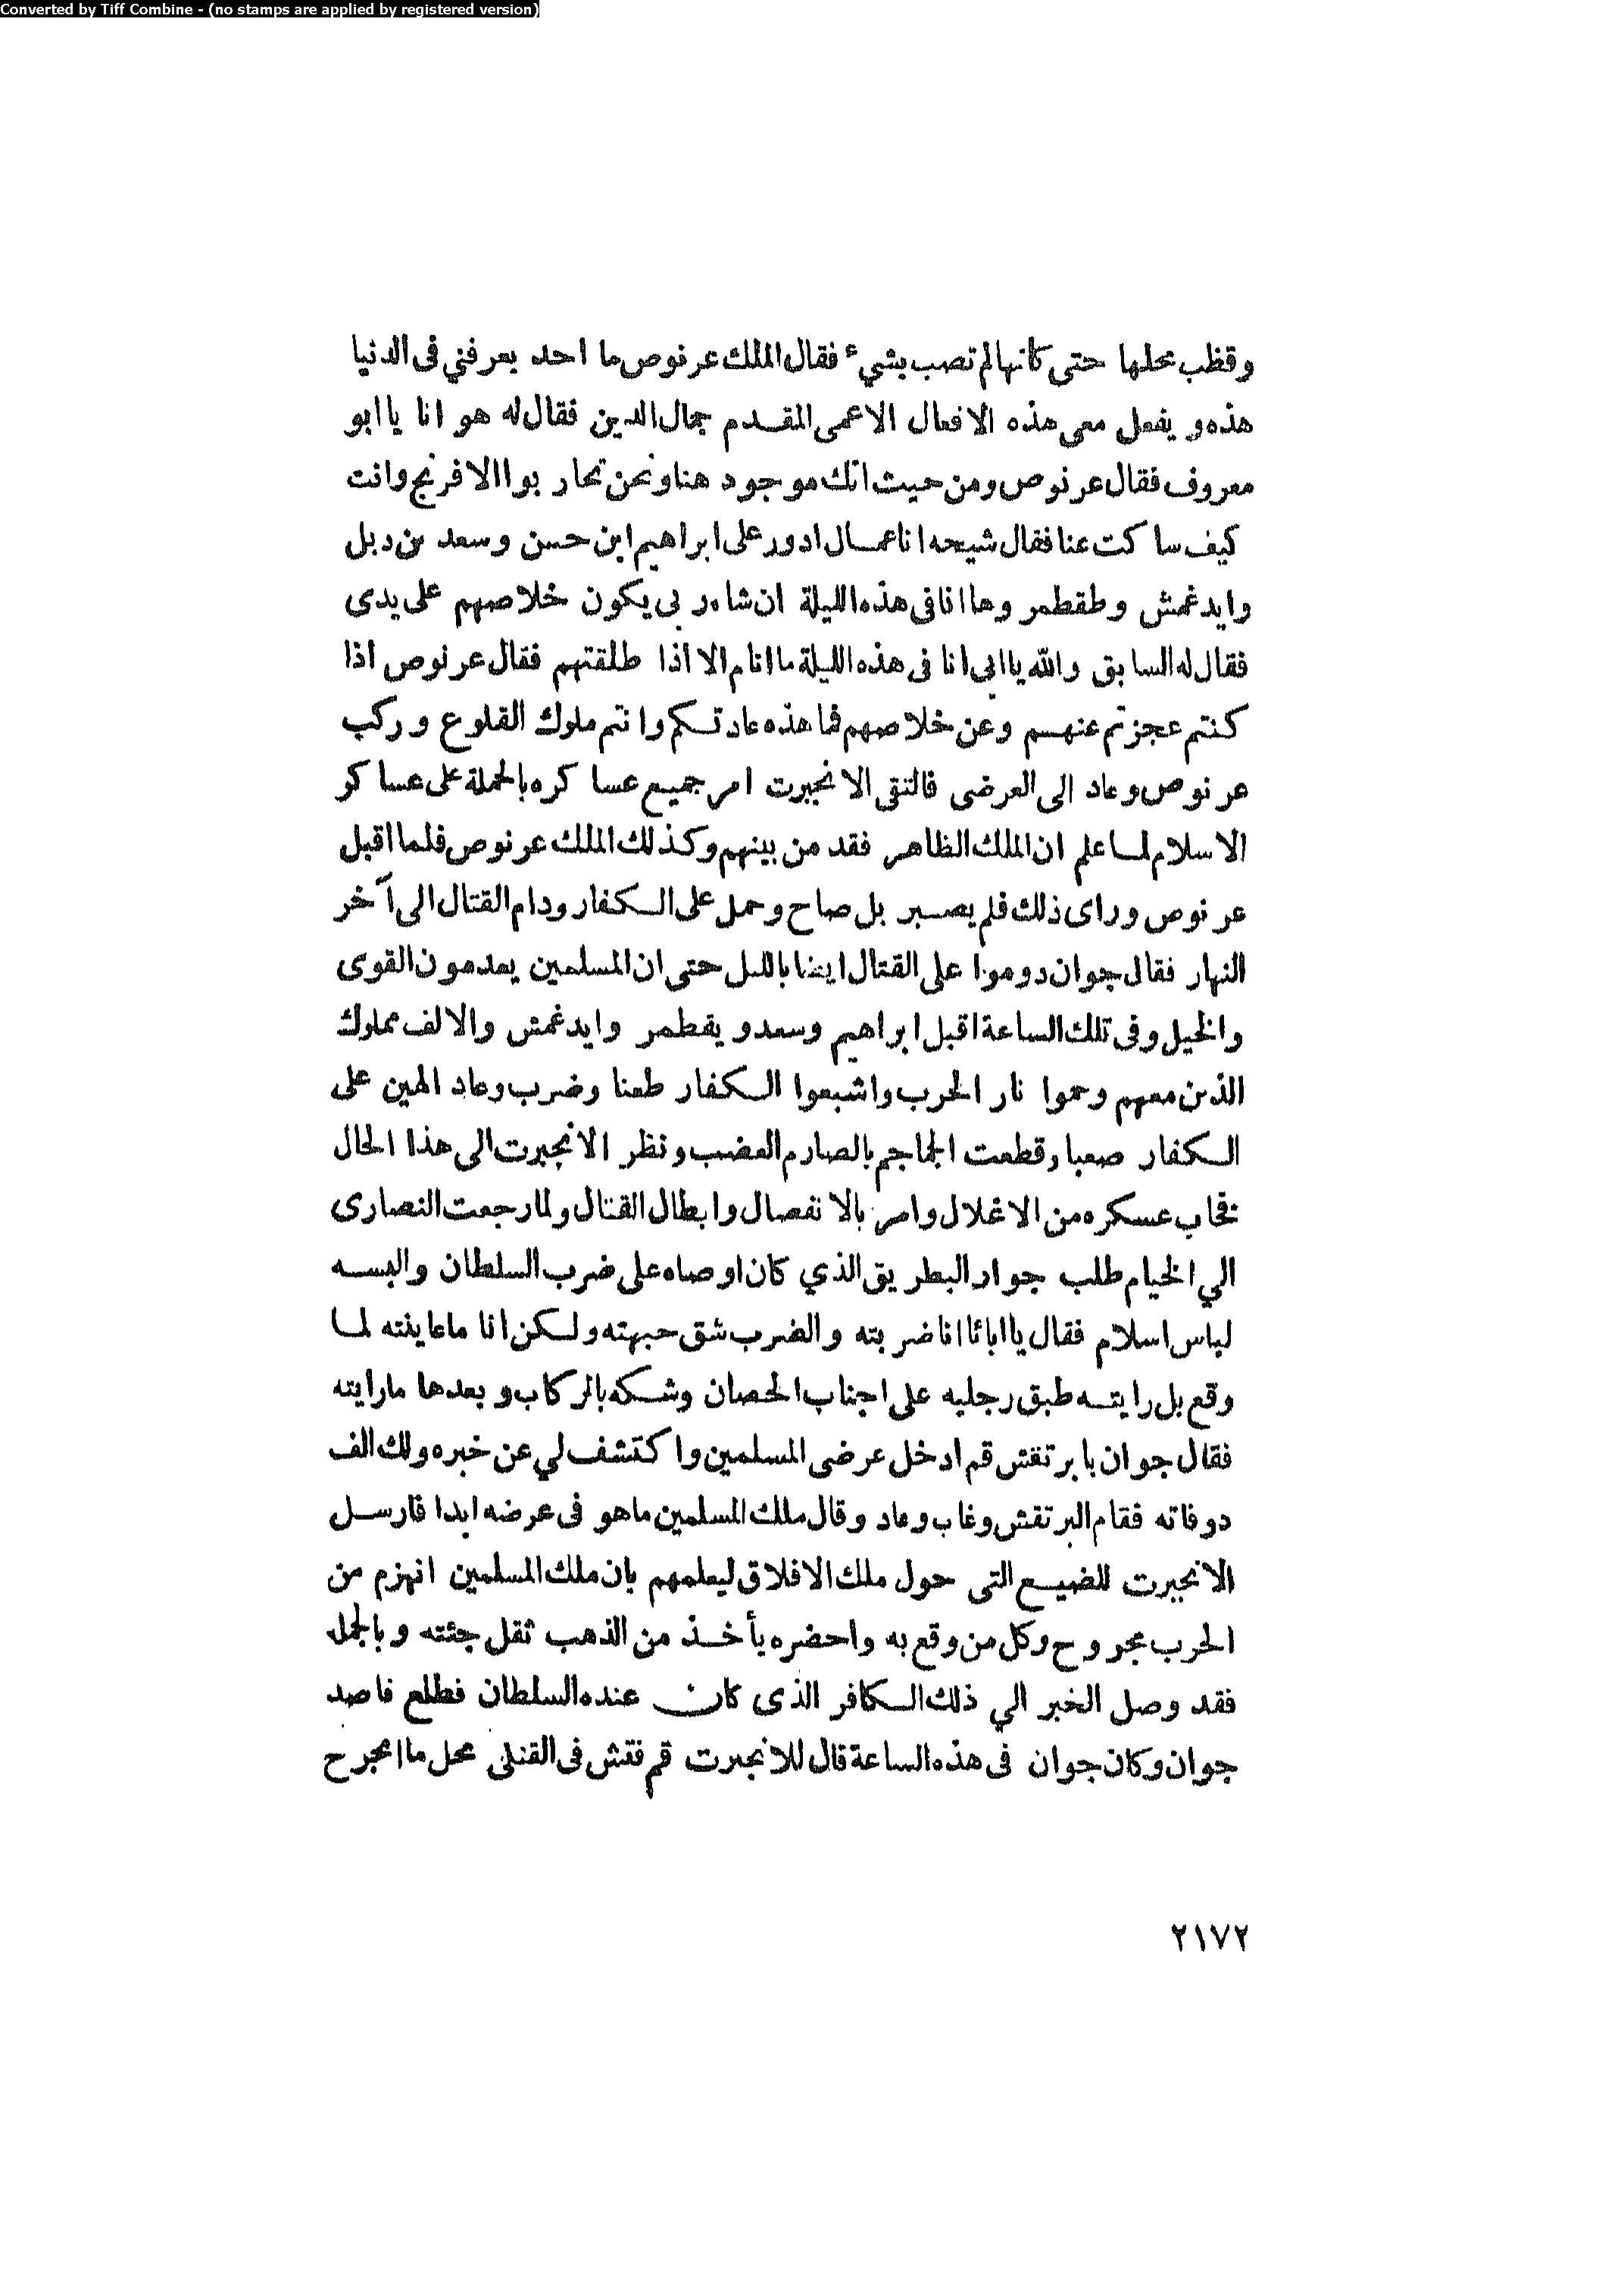 Converted by Tiff Combine - (no stamps are applied by registered version)
وقظب محلها حتى كانها لم تصب بشيء فقال الملك عرنوص ما احد يعرفني فى الدنيا
هذه ويفعل معى هذه الافعال الا عمى المقدم جمال الدين فقال له هو انا يا ابو
معروف فقال عرنوص ومن حيث انك موجود هنا ونحن نحاربوا الافرنج وانت
كيف ساكت عنا فقال شيحه انا عمال ادور على ابراهيم ابن حسن وسعد بن دبل
وايدغمش وطقطمر وها انا فى هذه الليلة ان شاء ربى يكون خلاصهم على يدى
فقال له السابق والله يا ابى انا فى هذه الليلة ما انام الا اذا طلقتهم فقال عرنوص اذا
كنتم عجزتم عنهم وعن خلاصهم فما هذه عادتكم وانتم ملوك القلوع وركب
عرنوص وعاد الى العرضى فالتقى الانجبرت امر جميع عساكره بالحملة على عساكر
الاسلام لما علم ان الملك الظاهر فقد من بينهم وكذلك الملك عرنوص فلما اقبل
عرنوص وراى ذلك فلم يصبر بل صاح وحمل على الكفار ودام القتال الى آخر
النهار فقال جوان دوموا على القتال ايضا بالليل حتى ان المسلمين يعدمون القوى
والخيل وفى تلك الساعة اقبل ابراهيم وسعد ويقطمر وايدغمش والالف مملوك
الذين معهم وحموا نار الحرب واشبعوا الكفار طعنا وضرب وعاد الهين على
الكفار صعبا وقطعت الجماجم بالصارم العضب ونظر الانجبرت الى هذا الحال
فخاب عسكره من الاغلال وامر بالانفصال وابطال القتال ولما رجعت النصارى
الي الخيام طلب جوار البطريق الذي كان اوصاه على ضرب السلطان والبسه
لباس اسلام فقال يا ابانا انا ضربته والضرب شق جبهته ولكن انا ما عاينته لما
وقع بل رايته طبق رجليه على اجناب الحصان وشكه بالركاب وبعدها مارايته
فقال جوان يا برتقش قم ادخل عرضى المسلمين واكتشف لي عن خبره ولك الف
دوقاته فقام البرتقش وغاب وعاد وقال ملك المسلمين ماهو فى عرضه ابدا فارسل
الانجبرت للضيع التى حول ملك الافلاق ليعلمهم بان ملك المسلمين انهزم من
الحرب مجروح وكل من وقع به واحضره يأخذ من الذهب ثقل جثته وبالجمله
فقد وصل الخبر الي ذلك الكافر الذى كان عنده السلطان فطلع قاصد
جوان وكان جوان فى هذه الساعة قال للانجبرت قم فتش فى القتلى محل ما انجرح
٢١٧٢